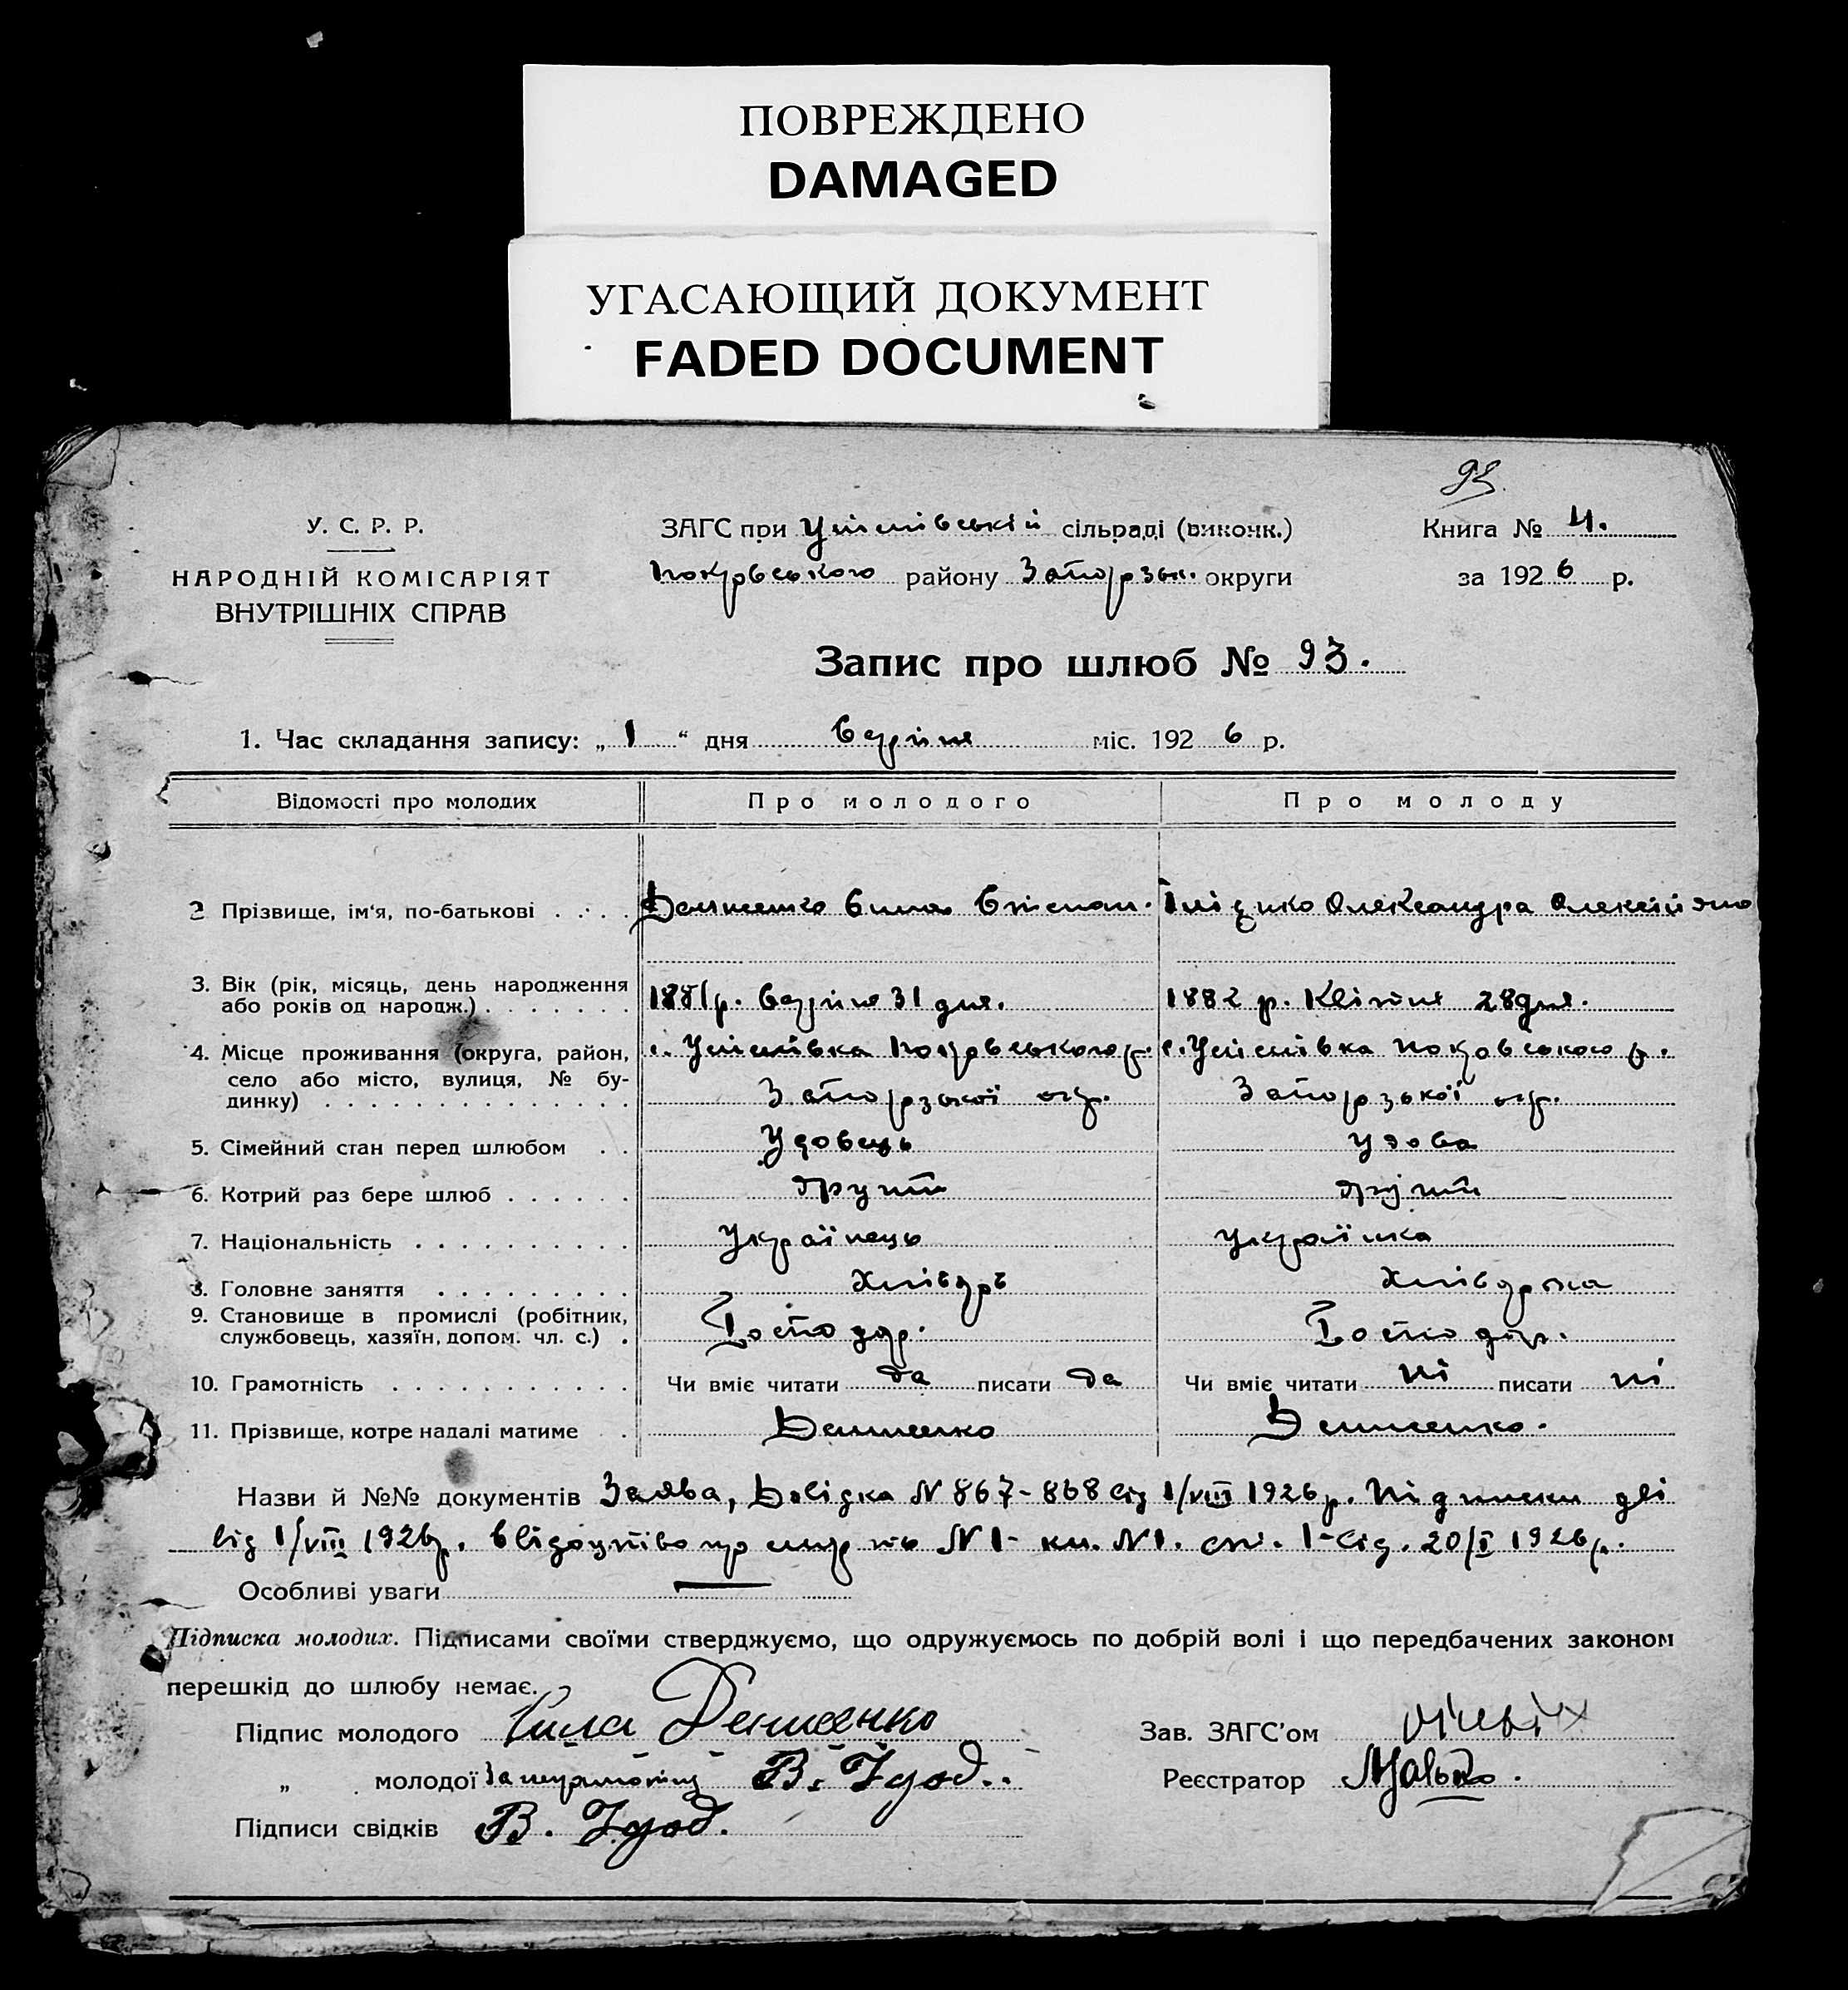 ПОВРЕЖДЕНО
DAMAGED
УГАСАЮЩИЙ ДОКУМЕНТ
FADED DOCUMENT
93.
У. С. Р. Р.
НАРОДНІЙ КОМІСАРІЯТ
ВНУТРІШНІХ СПРАВ
ЗАГС при Успенівській сільраді (виконк.)
Покровського району Запорзьк. округи
Книга № 4.
за 1926 р.
Запис про шлюб № 93.
1. Час складання запису: „1“ дня серпня міс. 1926 р.
Відомості про молодих Про молодого Про молоду
2 Прізвище, ім'я, по-батькові Денисенко Сила Олександра Олексійовна
3. Вік (рік, місяць, день народження
або років од народж.) 1881 р. серпня 31 дня. 1882 р. Квітня 28 дня.
4. Місце проживання (округа, район, с. Успенівка Покровського р. с. Успенівка Покровського р.
село або місто, вулиця, № бу-
динку) Запорзької окр. Запорзької окр.
5. Сімейний стан перед шлюбом Удовець удова
6. Котрий раз бере шлюб другий другий
7. Національність Українець українка
8. Головне заняття Хлібороб Хлібор.
9. Становище в промислі (робітник,
службовець, хазяїн, допом. чл. с.) Господар. Господар.
10. Грамотність Чи вміє читати да писати да Чи вміє читати ні писати ні
11. Прізвище, котре надалі матиме Денисенко Денисенко.
Назви й №№ документів Заява, Довідка N 867-868 від 1/VIII 1926 р. Підписки дві
від 1/VIII 1926 р. Свідоцтво про смерть N 1 - кн. N 1. ст. 1 - від. 20/I 1926 р.
Особливі уваги —
Підписка молодих. Підписами своїми стверджуємо, що одружуємось по добрій волі і що передбачених законом
перешкід до шлюбу немає.
Підпис молодого Сила Денисенко Зав. ЗАГС'ом
„ молодої За неграмотну В. Реєстратор
Підписи свідків В.